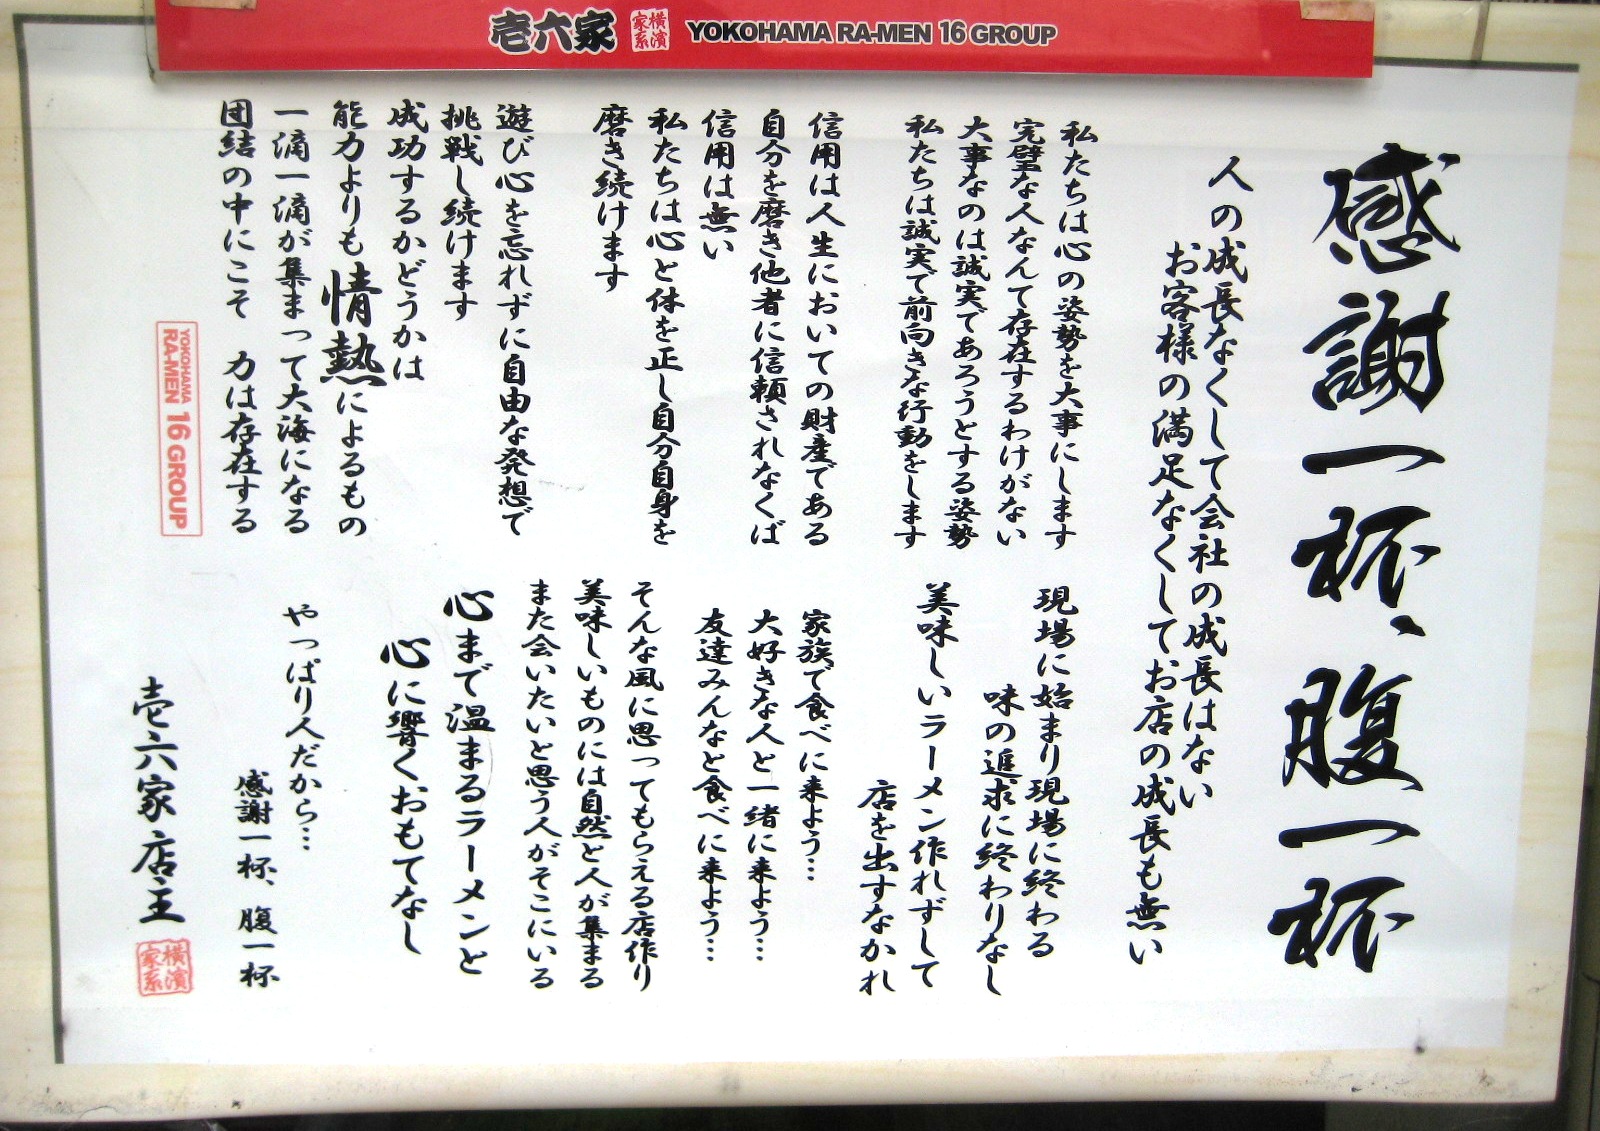 壱六家 横濱家系 YOKOHAMA RA-MEN 16 GROUP
感謝一杯、腹一杯
人の成長なくして会社の成長はない
お客様の満足なくしてお店の成長も無い
私たちは心の姿勢を大事にします
完璧な人なんて存在するわけがない
大事なのは誠実であろうとする姿勢
私たちは誠実で前向きな行動をします
信用は人生においての財産である
自分を磨き他者に信頼されなくば
信用は無い
私たちは心と体を正し自分自身を
磨き続けます
遊び心を忘れずに自由な発想で
挑戦し続けます
成功するかどうかは
能力よりも情熱によるもの
一滴一滴が集まって大海になる
団結の中にこそ 力は存在する
YOKOHAMA
RA-MEN 16 GROUP
現場に始まり現場に終わる
味の追求に終わりなし
美味しいラーメン作れずして
店を出すなかれ
家族で食べに来よう…
大好きな人と一緒に来よう…
友達みんなと食べに来よう…
そんな風に思ってもらえる店作り
美味しいものには自然と人が集まる
また会いたいと思う人がそこにいる
心まで温まるラーメンと
心に響くおもてなし
やっぱり人だから…
感謝一杯、腹一杯
壱六家 店主
横濱家系